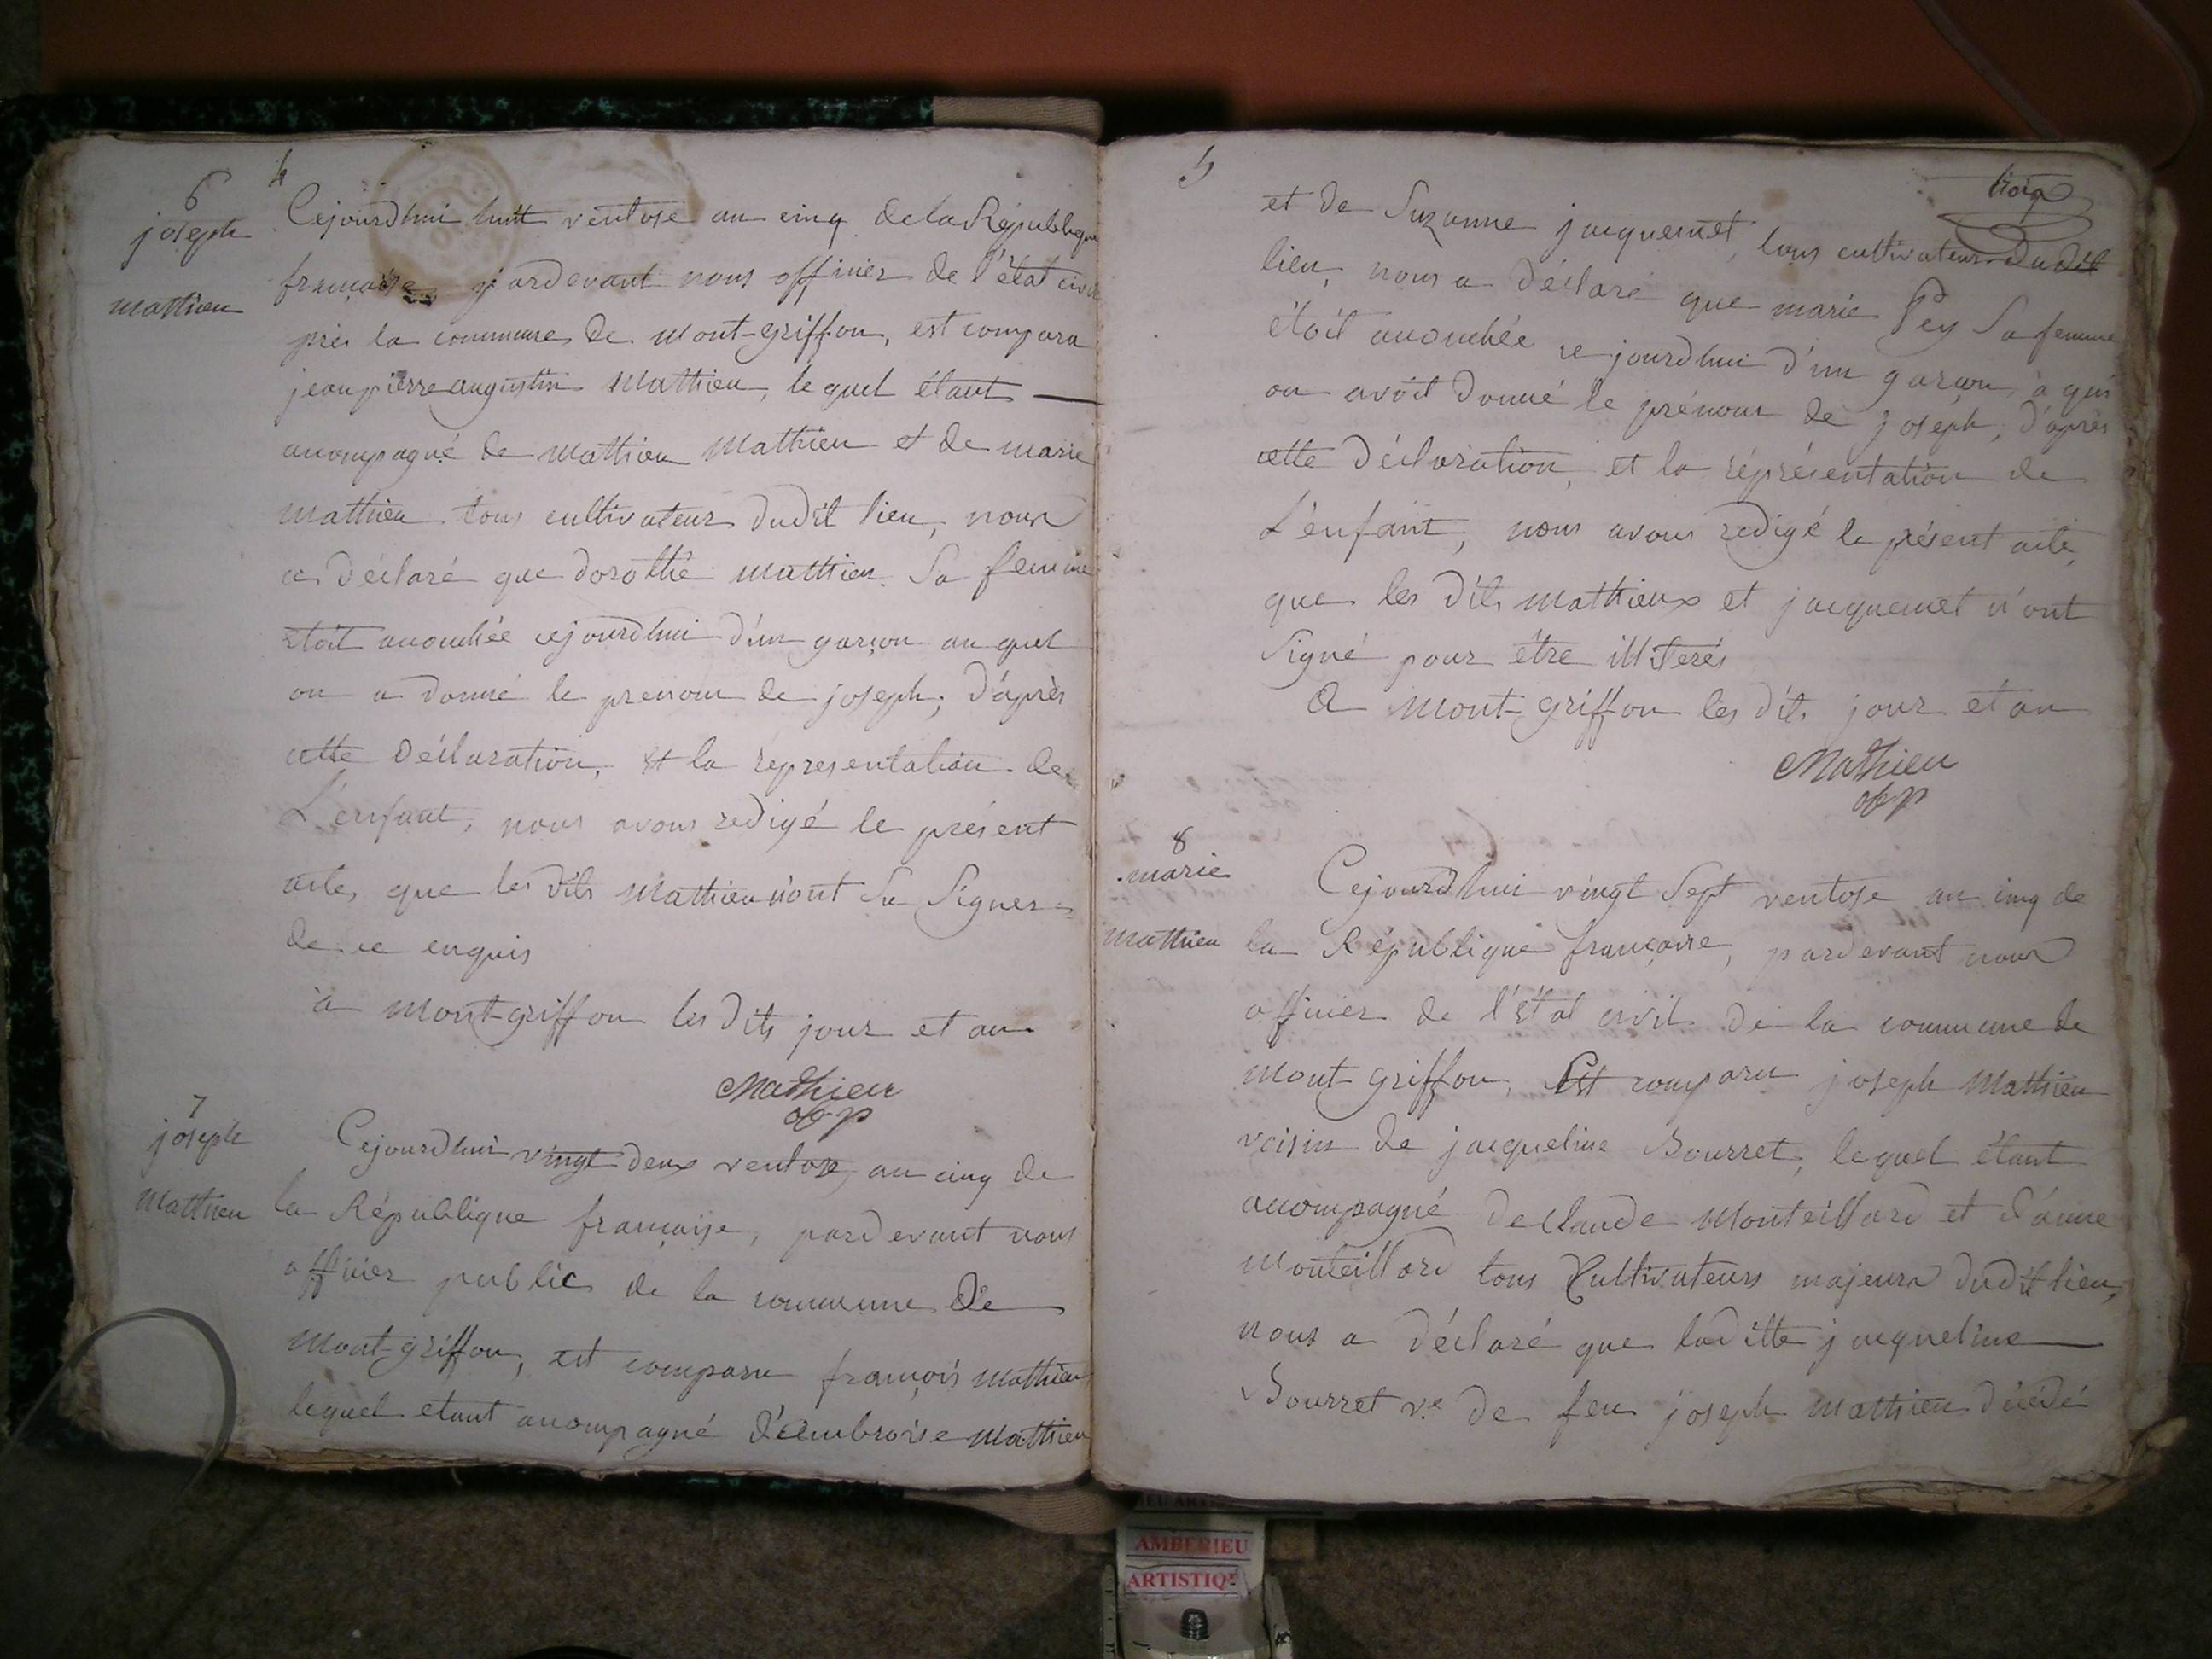 4
6
joseph
mathieu
Cejourdhui huit ventose an cinq de la République
françoise, pardevant nous officier de l'état civil
près la commune de Mont-griffon, est comparu
jean pierre augustin Mathieu, le quel étant
acompagné de Mathieu Mathieu et de marie
Mathieu tous cultivateurs dudit lieu, nous
a déclaré que dorothé mathieu Sa femme
étoit acouchée cejourdhui d'un garçon au quel
on a donné le prenom de joseph; d'après
cette déclaration, et la représentation de
L'enfant, nous avons redigé le présent
acte, que les dits Mathieu n'ont Su Signer
de ce enquis
à Mont-griffon les dits jour et an
Mathieu
ofp
7
joseph
Mathieu
Cejourdhui vingt deux ventose, an cinq de
la République françoise, pardevant nous
officier public de la commune de
Mont-griffon, est comparu françois Mathieu
lequel etant acompagné d'embroise Mathieu
5
trois
et de Suzanne jacquemet, tous cultivateurs dudit
lieu, nous a déclaré que marie Pey Sa femme
étoit acouchée ce jourdhui d'un garçon, à qui
on avoit donné le prénom de joseph, d'après
cette déclaration, et la réprésentation de
L'enfant, nous avons redigé le présent acte,
que les dits Mathieux et jacquemet n'ont
Signé pour être illiterés
A Mont-griffon les dits jour et an
Mathieu
ofp
8
marie
Mathieu
Cejourdhui vingt Sept ventose an cinq de
la République françoise, pardevant nous
officier de l'état civil de la commune de
Mont-griffon, Est comparu joseph Mathieu
voisin de jacqueline Bourret, lequel étant
acompagné de Claude Monteillard et d'anne
Monteillard tous Cultivateurs majeurs dudit lieu,
nous a déclaré que laditte jacqueline
Bourret ve de feu joseph Mathieu décédé
AMBERIEU
ARTISTIQ